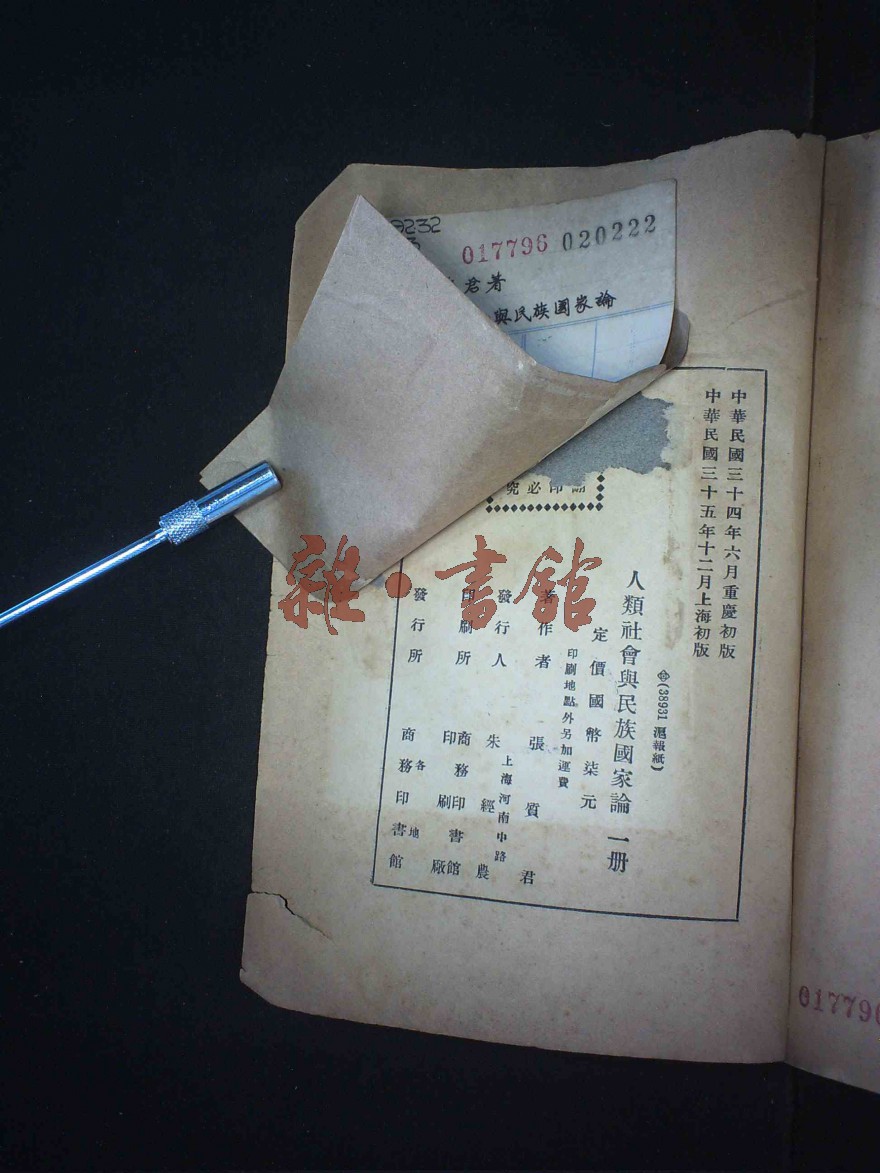 9232
017796 020222
君著
與民族國家論
中華民國三十四年六月重慶初版
中華民國三十五年十二月上海初版
(38931 滬報紙)
人類社會與民族國家論 一册
定價國幣柒元
印刷地點外另加運費
著作者 張質君
上海河南中路
發行人 朱經農
印刷所 商務印書館印刷廠
發行所 各地商務印書館
翻印必究
雜·書館
017796